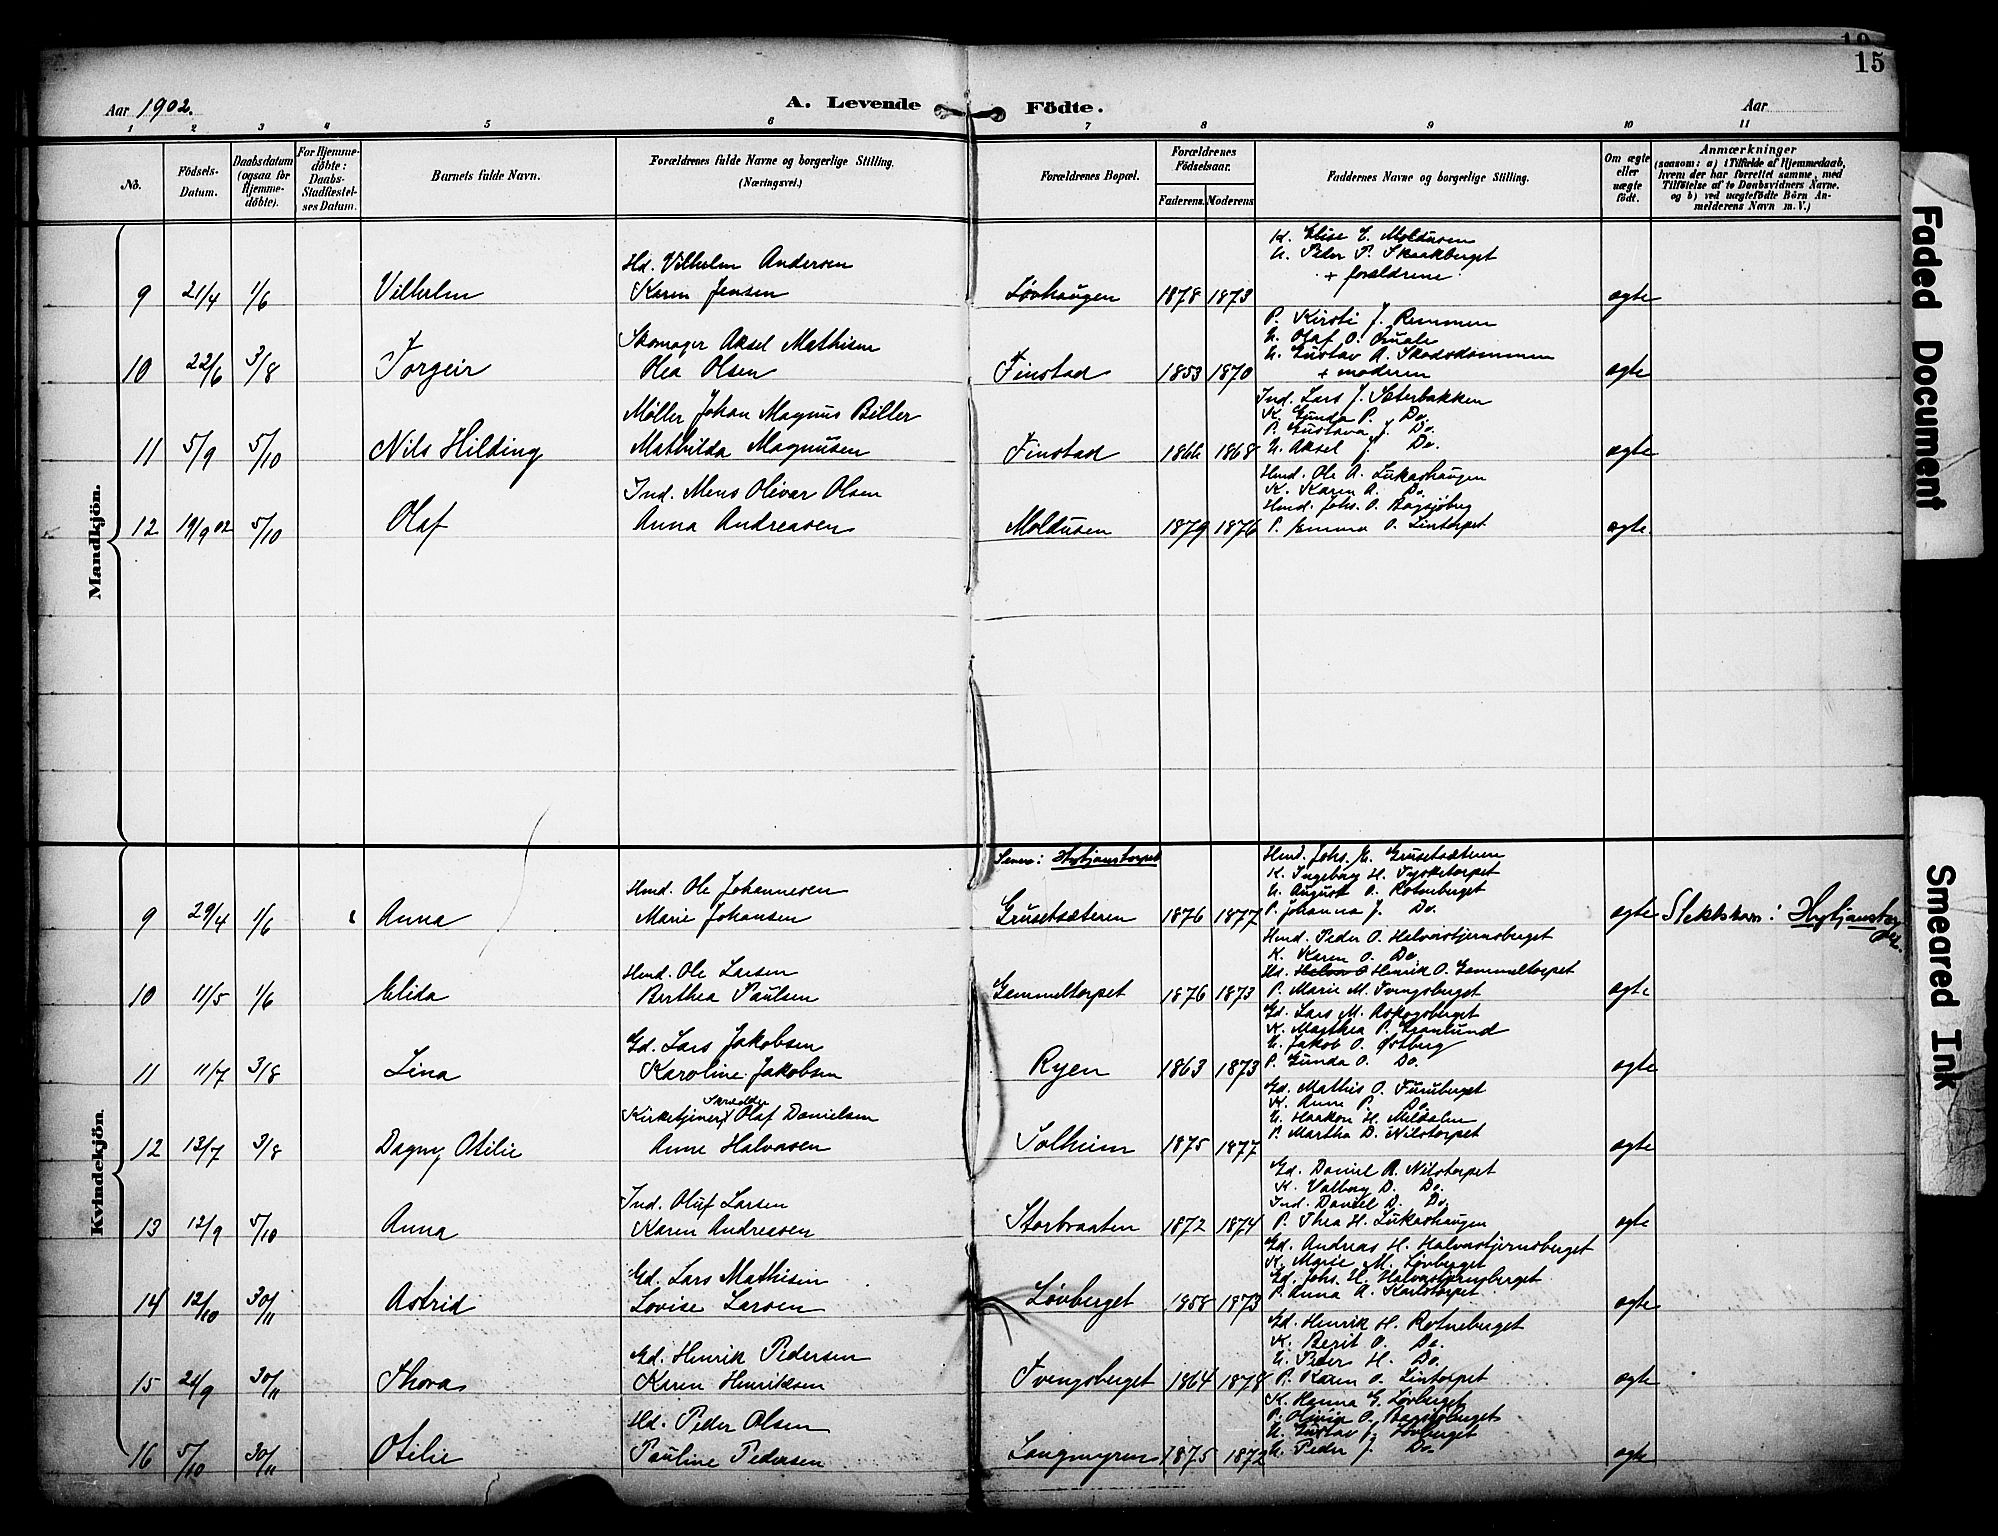 15
Aar 1902. A. Levende Födte. Aar
1 2 3 4 5 6 7 8 9 10 11
No. Födsels-Datum. Daabsdatum (ogsaa for Hjemme-döbte). For Hjemme-döbte: Daabs-Stadfæstel-ses Datum. Barnets fulde Navn. Forældrenes fulde Navne og borgerlige Stilling. (Næringsvei.) Forældrenes Bopæl. Forældrenes Födselsaar. Faderens. Moderens Faddernes Navne og borgerlige Stilling. Om ægte eller uægte födt. Anmærkninger (saasom: a) i Tilfælde af Hjemmedaab, hvem der har forrettet samme, med Tilföielse af to Daabsvidners Navne. og b) ved uægtefödte Börn An-melderens Navn m. V.)
Mandkjön.
K. Elise E. Moldusen
Hd. Vilhelm Andersen U. Peder P. Skaakberget
+ forældrene
9 21/4 1/6 Vilhelm Karen Jensen Løvhaugen 1878 1873 ægte
P. Kirsti J. Remmen
Skomager Aksel Mathisen U. Olaf O.
U. Gustav A.
10 22/6 3/8 Torgeir Olea Olsen Finstad 1853 1870 + moderen ægte
Ind. Lars J. Sæterbakken
Møller Johan Magnus Biller K. Gunda P. Do.
P. Gustava J. Do.
11 5/9 5/10 Nils Hilding Mathilda Magnusen Finstad 1866 1868 U. Aksel J. Do. ægte
Hmd. Ole A. Lukashaugen
Ind. Mens Olivar Olsen K. Karen A. Do.
Hmd. Johs. O. Bagsjøberg
12 19/9 02 5/10 Olaf Anna Andreasen Moldusen 1879 1876 P. Emma O. Lintorpet ægte.
Kvindekjön.
Senere: Hytjanstorpet Hmd. Johs. E. Grusetsæteren
Hmd. Ole Johannesen K. Ingeborg H. Tysketorpet
U. August O. Rotneberget
9 29/4 1/6 Anna Marie Johansen Grusetsæteren 1876 1877 P. Johanna J. Do. ægte Slektsnavn: Hytjanstorpet.
Hmd. Peder O. Halvorstjernsberget
K. Karen O. Do.
Hmd. Ole Larsen Hd. Halvor O Henrik O. Gammeltorpet
10 11/5 1/6 Elida Berthea Paulsen Gammeltorpet 1876 1873 P. Marie M. Tvengsberget ægte
Gd. Lars M. Rokogsberget
Gd. Lars Jakobsen K. Marthea P. Granlund
U. Jakob O. Østberg
11 11/7 3/8 Lina Karoline Jakobsen Ryen 1863 1873 P. Gunda O. Do. ægte
Gd. Mathis O. Furuberget
Skrædder K. Anne P. Do.
Kirketjener Olaf Danielsen U. Haakon H. Meldalen
12 13/7 3/8 Dagny Otilie Anne Halvorsen Solheim 1875 1877 P. Martha D. Nilstorpet ægte
Gd. Daniel A. Nilstorpet
K. Valborg D. Do.
Ind. Oluf Larsen Ind. Daniel D. Do.
13 12/9 5/10 Anna Karen Andreasen Storbraaten 1872 1874 P. Thea H. Lukashaugen ægte
Gd. Andreas H. Halvorstjernsberget
K. Marie M. Løvberget
Gd. Lars Mathisen Gd. Johs. H. Halvorstjernsberget
14 12/10 30/11 Astrid Lovise Larsen Løvberget 1858 1873 P. Anna A. Karlstorpet ægte
Gd. Henrik H. Rotneberget
K. Berit O. Do.
Gd. Henrik Pedersen U. Peder H. Do.
15 24/9 30/11 Thora Karen Henriksen Tvengsberget 1864 1878 P. Karen O. Lintorpet ægte
K. Hanna G. Løvberget
Hd. Peder Olsen P. Olivia O. Bagsjøberget
U. Gustav J. Løvberget
16 5/10 30/11 Otilie Pauline Pedersen Langmyren 1875 1872 U. Peder J. Do. ægte
Faded Document
Smeared Ink